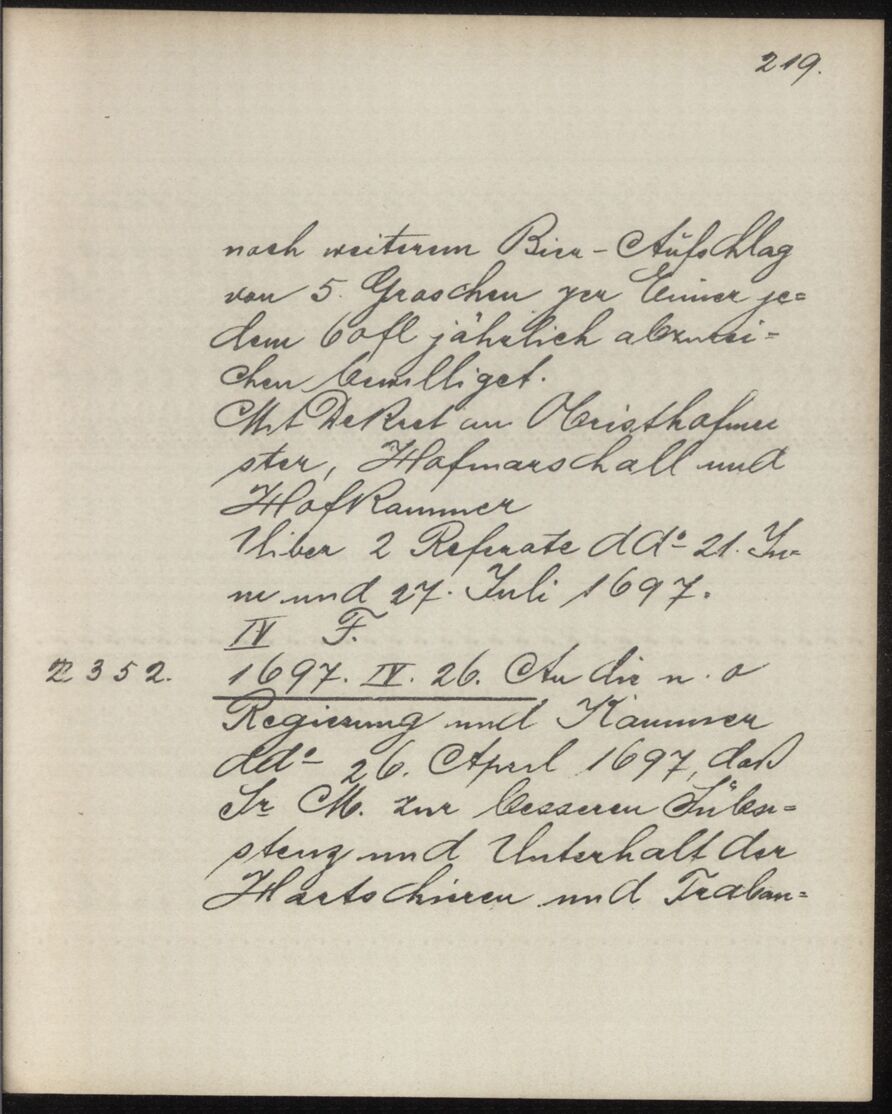 219.
noch weiterem Bier-Aufschlag
von 5. Groschen per Eimer je=
dem 60fl jährlich abzurei=
chen bewilliget.
Mit Dekret an Obristhofmei
ster, Hofmarschall und
Hofkammer
Uiber 2 Referate ddo 21. Ju=
ni und 27. Juli 1697.
IV F.
N 352. 1697. IV. 26. An die n. o
Regierung und Kammer
ddo 26. April 1697, daß
Sr M. zur besseren Subsi=
stenz und Unterhalt der
Hartschieren und Traban=